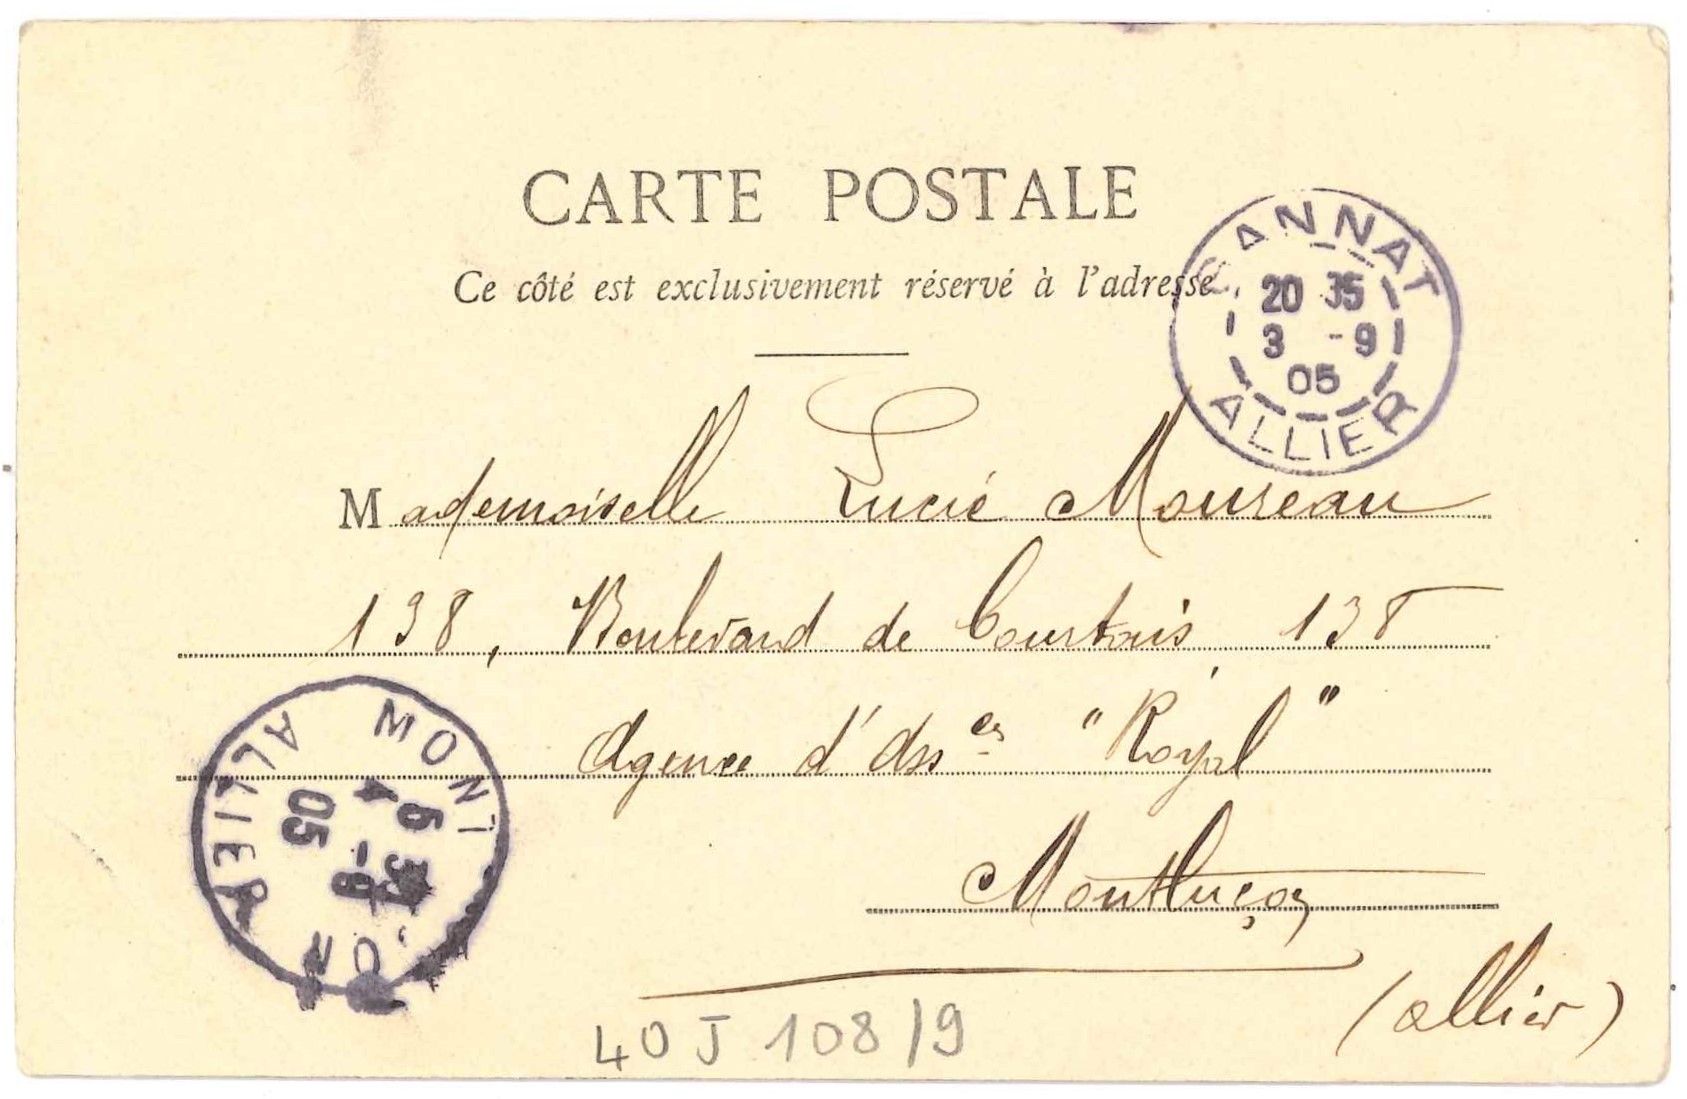 CARTE POSTALE
Ce côté est exclusivement réservé à l'adresse.
GANNAT
20 35
3 -9
05
ALLIER
Mademoiselle Lucie Moureau
138, Boulevard de Courtais 138
Agence d'Assces "Royal"
Montluçon
(Allier)
MONT ÇON
5
4 -9
05
ALLIER
40 J 108/9